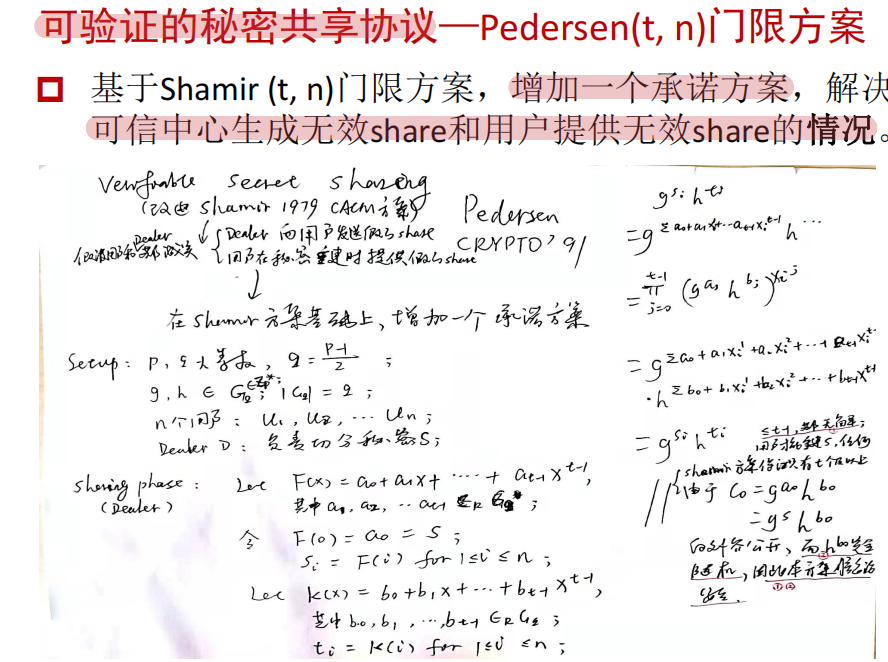 可验证的秘密共享协议—Pedersen(t, n)门限方案
基于Shamir (t, n)门限方案，增加一个承诺方案，解决
可信中心生成无效share和用户提供无效share的情况。
secret sharing
(改进 Shamir 1979 CACM方案)
Pedersen
CRYPTO'91
Dealer
Dealer 向用户发送假的share
用户在秘密重建时提供假的share
在Shamir方案基础上，增加一个承诺方案
Setup: p, q 大素数, q = (p-1)/2 ;
g, h ∈ G_q ; |G_q| = q ;
n个用户: u₁, u₂, … uₙ ;
Dealer D: 负责切分秘密S;
sharing phase:
(Dealer)
Let F(x) = a₀+a₁x+ ···· + a_{t-1} x^{t-1},
其中 a₁, a₂, ·· a_{t-1} ∈_R ;
令 F(0) = a₀ = S ;
s_i = F(i) for 1≤i≤n ;
Let k(x) = b₀+b₁x+···+b_{t-1} x^{t-1},
其中 b₀, b₁, …, b_{t-1} ∈_R G_q ;
t_i = k(i) for 1≤i≤n ;
g^{s_i} h^{t_i}
= g^{Σ a₀+a₁x_i+···a_{t-1}x_i^{t-1}} h^{···}
= ∏_{j=0}^{t-1} (g^{a_j} h^{b_j})^{x_i^j}
= g^{Σ a₀+a₁x_i^1+a₂x_i^2+···+a_{t-1}x_i^{t-1}}
· h^{Σ b₀+b₁x_i^1+b₂x_i^2+···+b_{t-1}x^{t-1}}
= g^{s_i} h^{t_i}
≤t-1,
shamir方案保证只有t个及以上
由于 C₀ = g^{a₀} h^{b₀}
= g^s h^{b₀}
公开, 而 h^{b₀} 完全
随机, 因此本方案
安全.